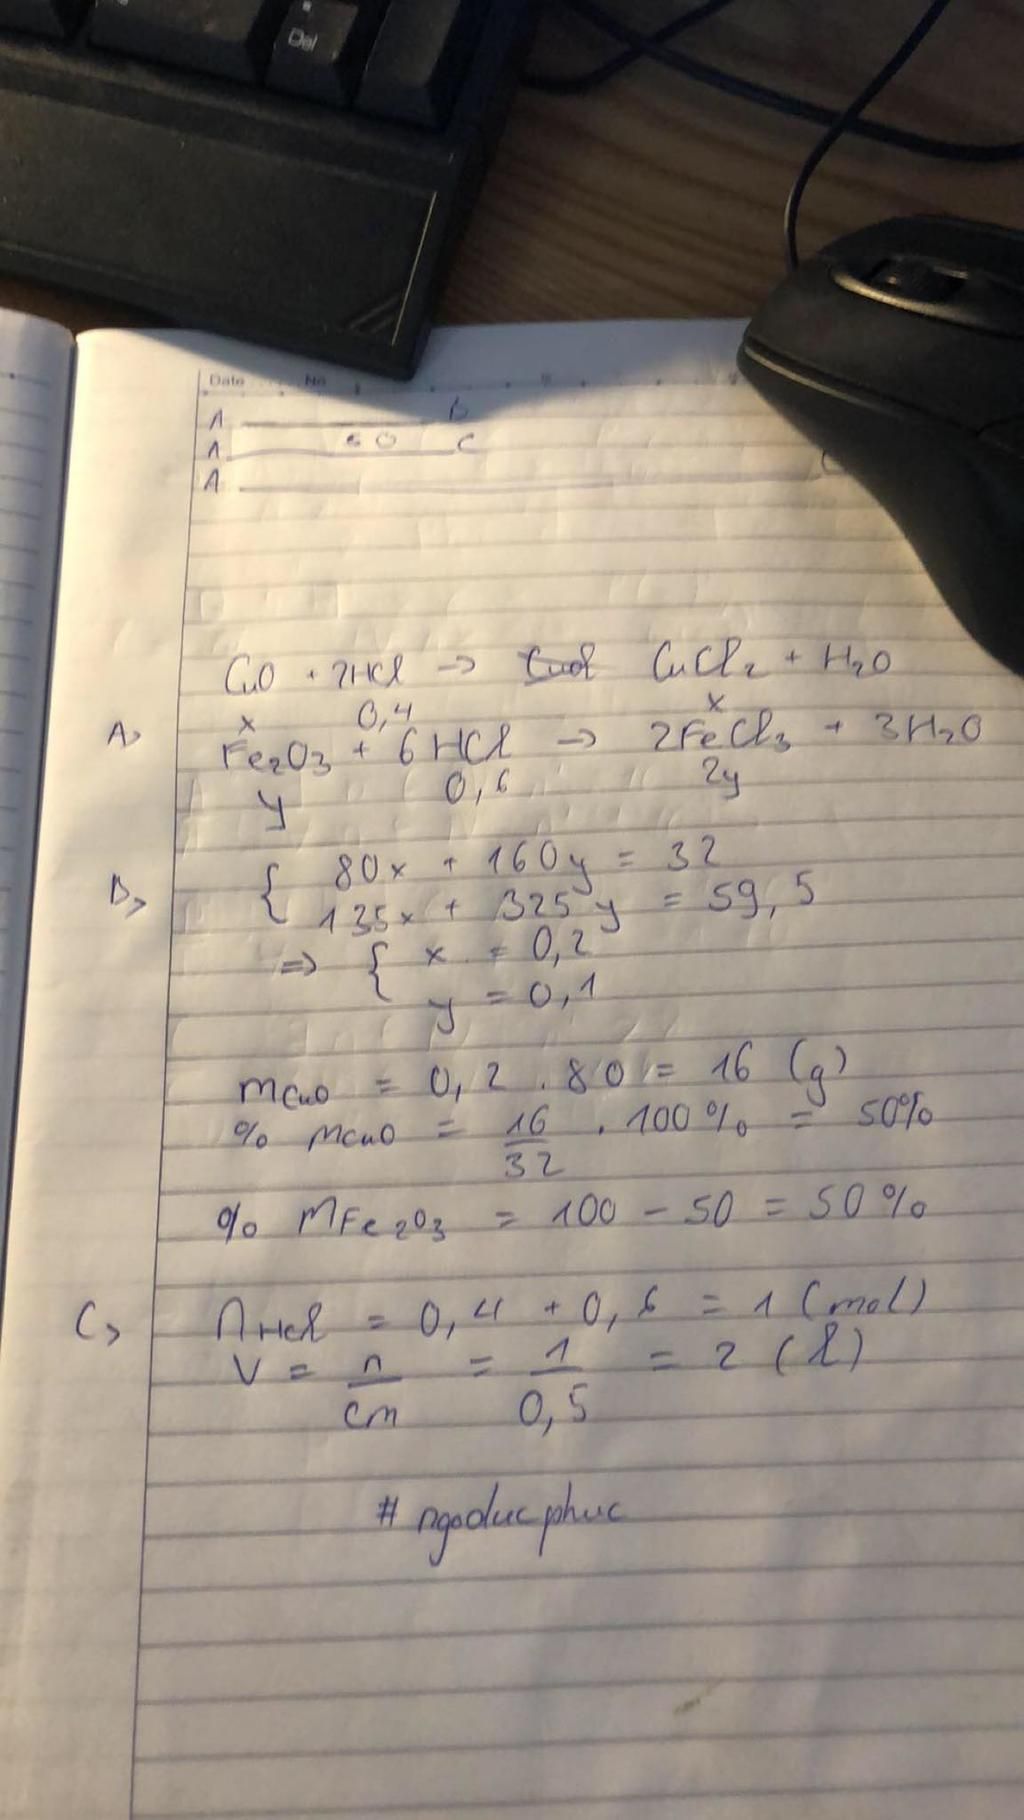 Del
Date No
A B
A 60 C
A C
CuO + 2HCl → CuCl₂ + H₂O
x 0,4 x
A> Fe₂O₃ + 6HCl → 2FeCl₃ + 3H₂O
y 0,6 2y
B> { 80x + 160y = 32
135x + 325y = 59,5
=> { x = 0,2
y = 0,1
mCuO = 0,2 . 80 = 16 (g)
% mCuO = 16/32 . 100% = 50%
% MFe₂O₃ = 100 - 50 = 50%
C> nHCl = 0,4 + 0,6 = 1 (mol)
V = n/cm = 1/0,5 = 2 (l)
# ngoducphuc